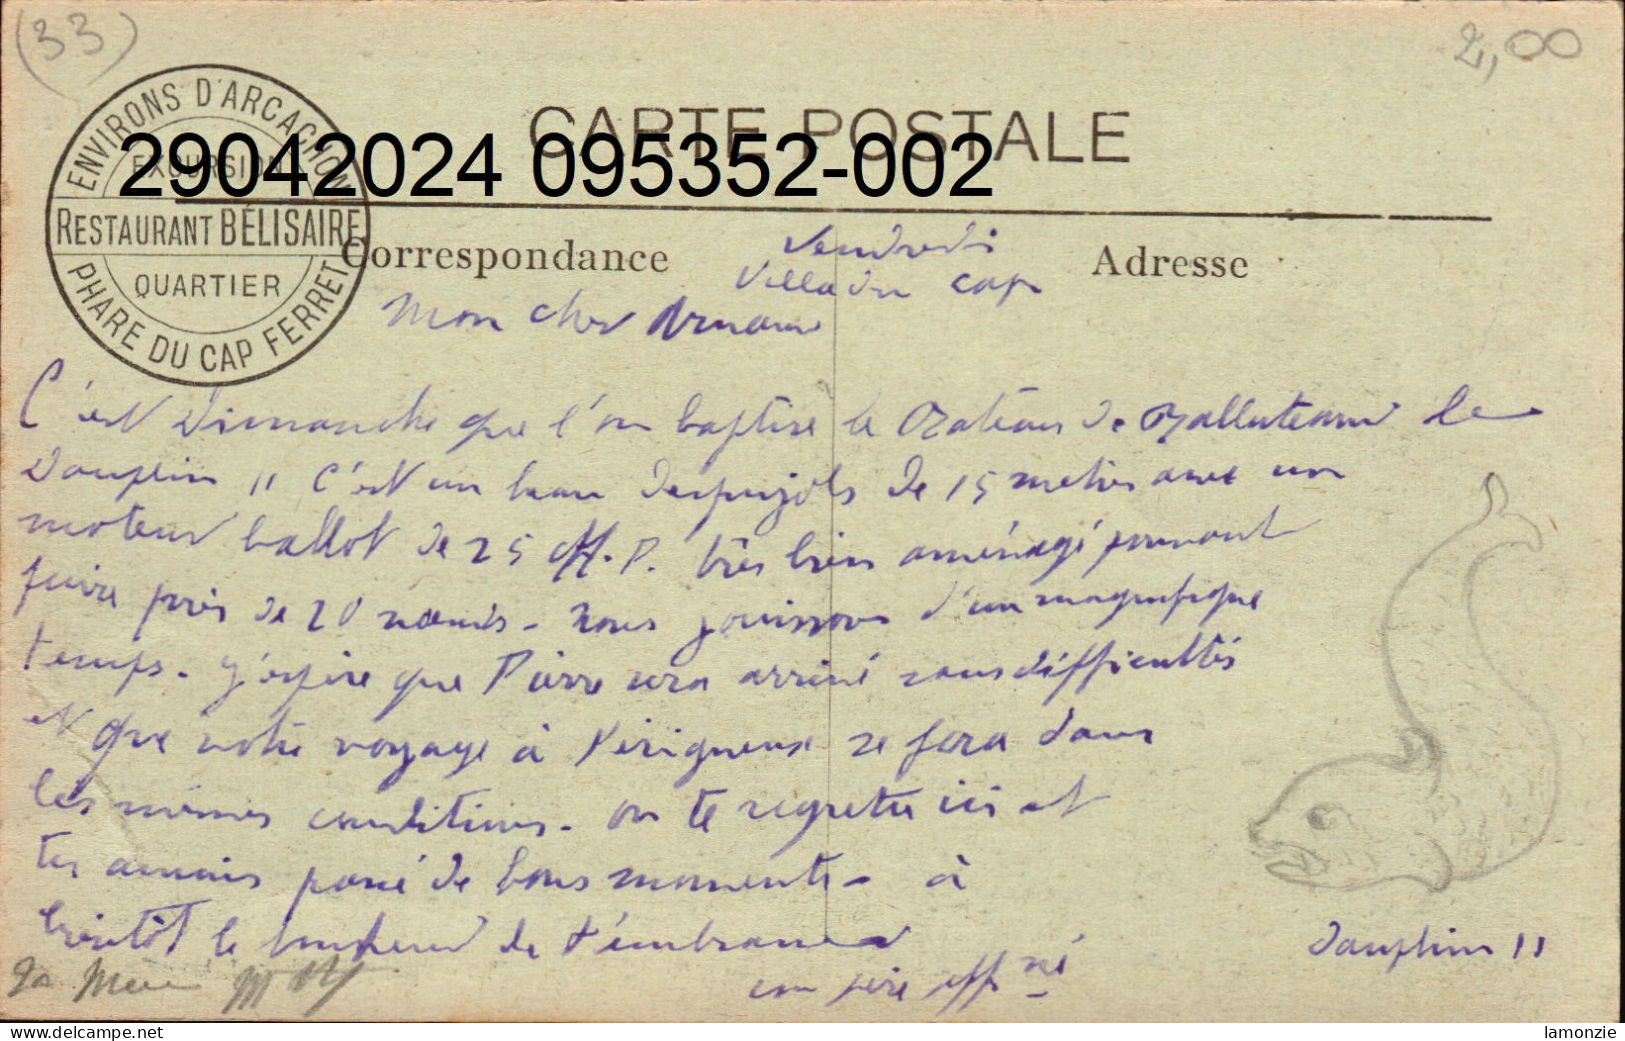 (33)
2,00
ENVIRONS D'ARCACHON
EXCURSION
RESTAURANT BÉLISAIRE
QUARTIER
PHARE DU CAP FERRET
CARTE POSTALE
29042024 095352-002
Correspondance
Adresse
Vendredi
Villa du Cap
Mon cher Armand
C'est Dimanche que l'on baptise le Bateau de Balluteaud le
Dauphin II C'est un beau despujols de 15 metres avec un
moteur ballot de 25 H.P. très bien aménagé pouvant
faire près de 20 nœuds - nous jouissons d'un magnifique
temps - j'espère que Pierre sera arrivé sans difficultés
et que votre voyage à Périgueux se fera dans
les mêmes conditions - on te regrette ici et
tu aurais passé de bons moments - à
bientôt le bonheur de t'embrasser
ton père aff né
Ta Mère
Dauphin II
delcampe.net
lamonzie